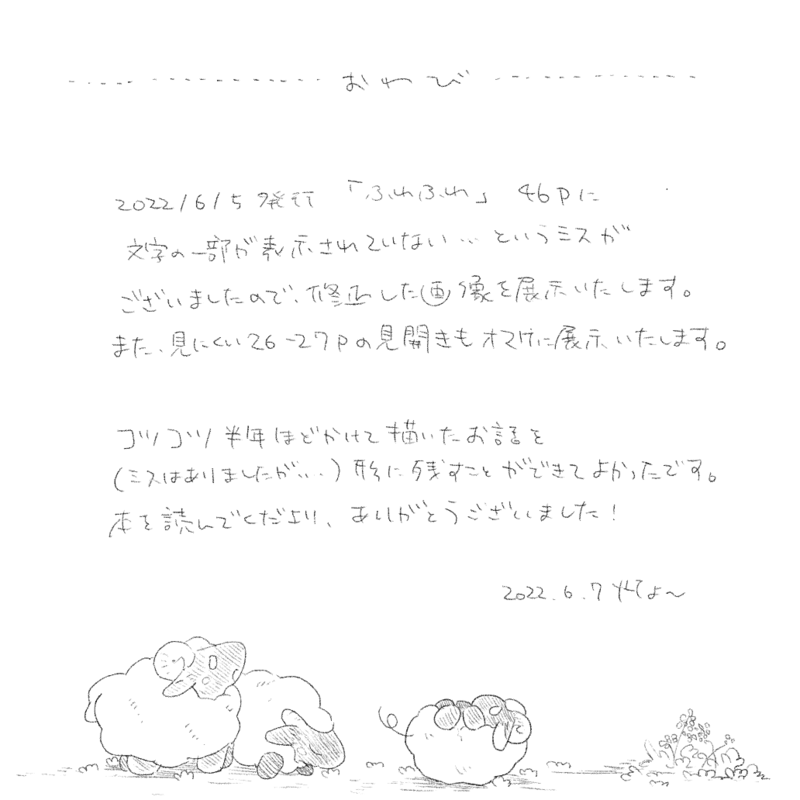 おわび
2022/6/5発行 「ふわふわ」 46pに
文字の一部が表示されていない… というミスが
ございましたので、修正した画像を展示いたします。
また、見にくい26-27pの見開きもオマケに展示いたします。
コツコツ半年ほどかけて描いたお話を
(ミスはありましたが…)形に残すことができてよかったです。
本を読んでくださり、ありがとうございました!
2022.6.7